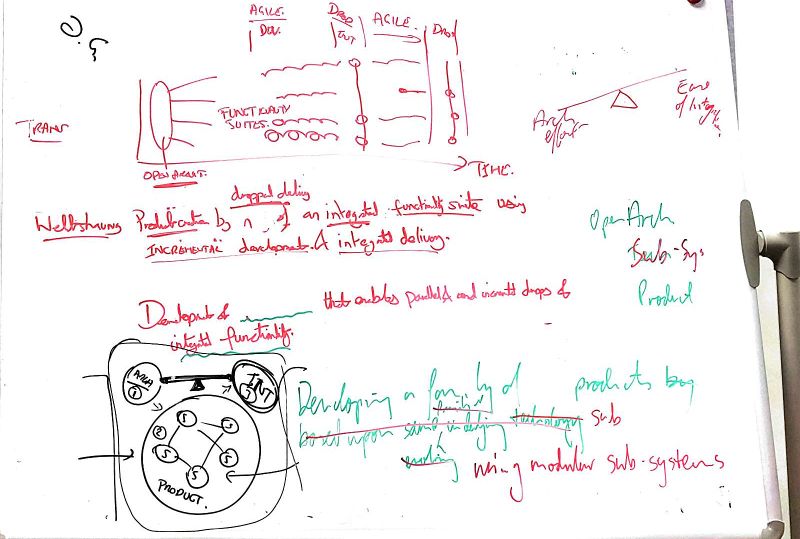 AGILE. DROP AGILE. DROP
DEV. INT
TRANS
FUNCTIONALITY
SUITES.
OPEN ARCHIT.
TIME.
Arch
effort
Ease
of Integ
dropped delivery
Weltschauung Productionation by n of an integrated functionality suite using
INCREMENTAL development & integrated delivery.
Open Arch
Sub-Sys
Product
Development of that enables parallel & and incremental drops of
integrated functionality.
ARCH
1
INT
3
2
S
S
S
S
S
PRODUCT.
Developing a family of products by
based upon same underlying technology sub
using modular sub-systems